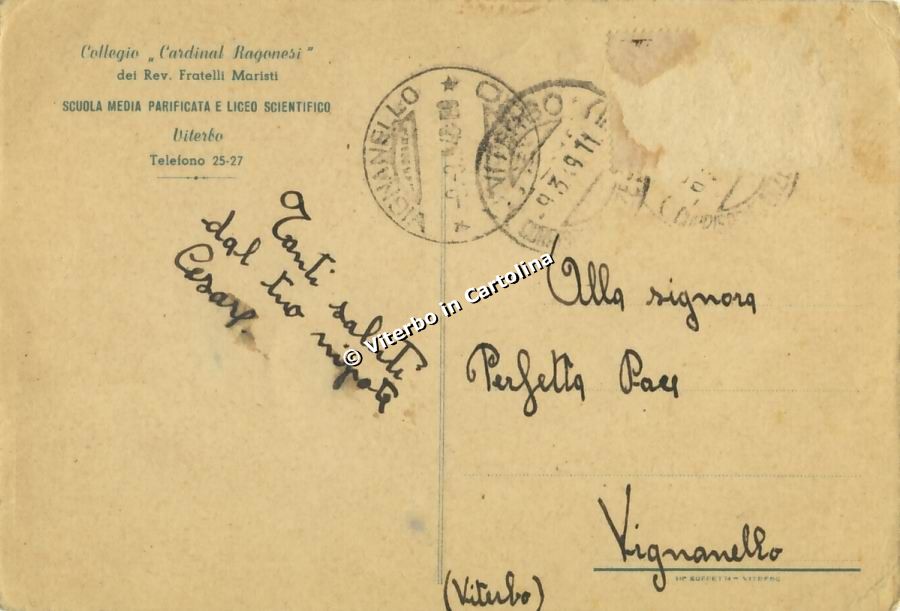 Collegio „Cardinal Ragonesi"
dei Rev. Fratelli Maristi
SCUOLA MEDIA PARIFICATA E LICEO SCIENTIFICO
Viterbo
Telefono 25-27
VIGNANELLO
VITERBO
9.3.49.11
Tanti saluti
dal tuo nipote
Cesare.
© Viterbo in Cartolina
Alla signora
Perfetta Pace
Vignanello
(Viterbo)